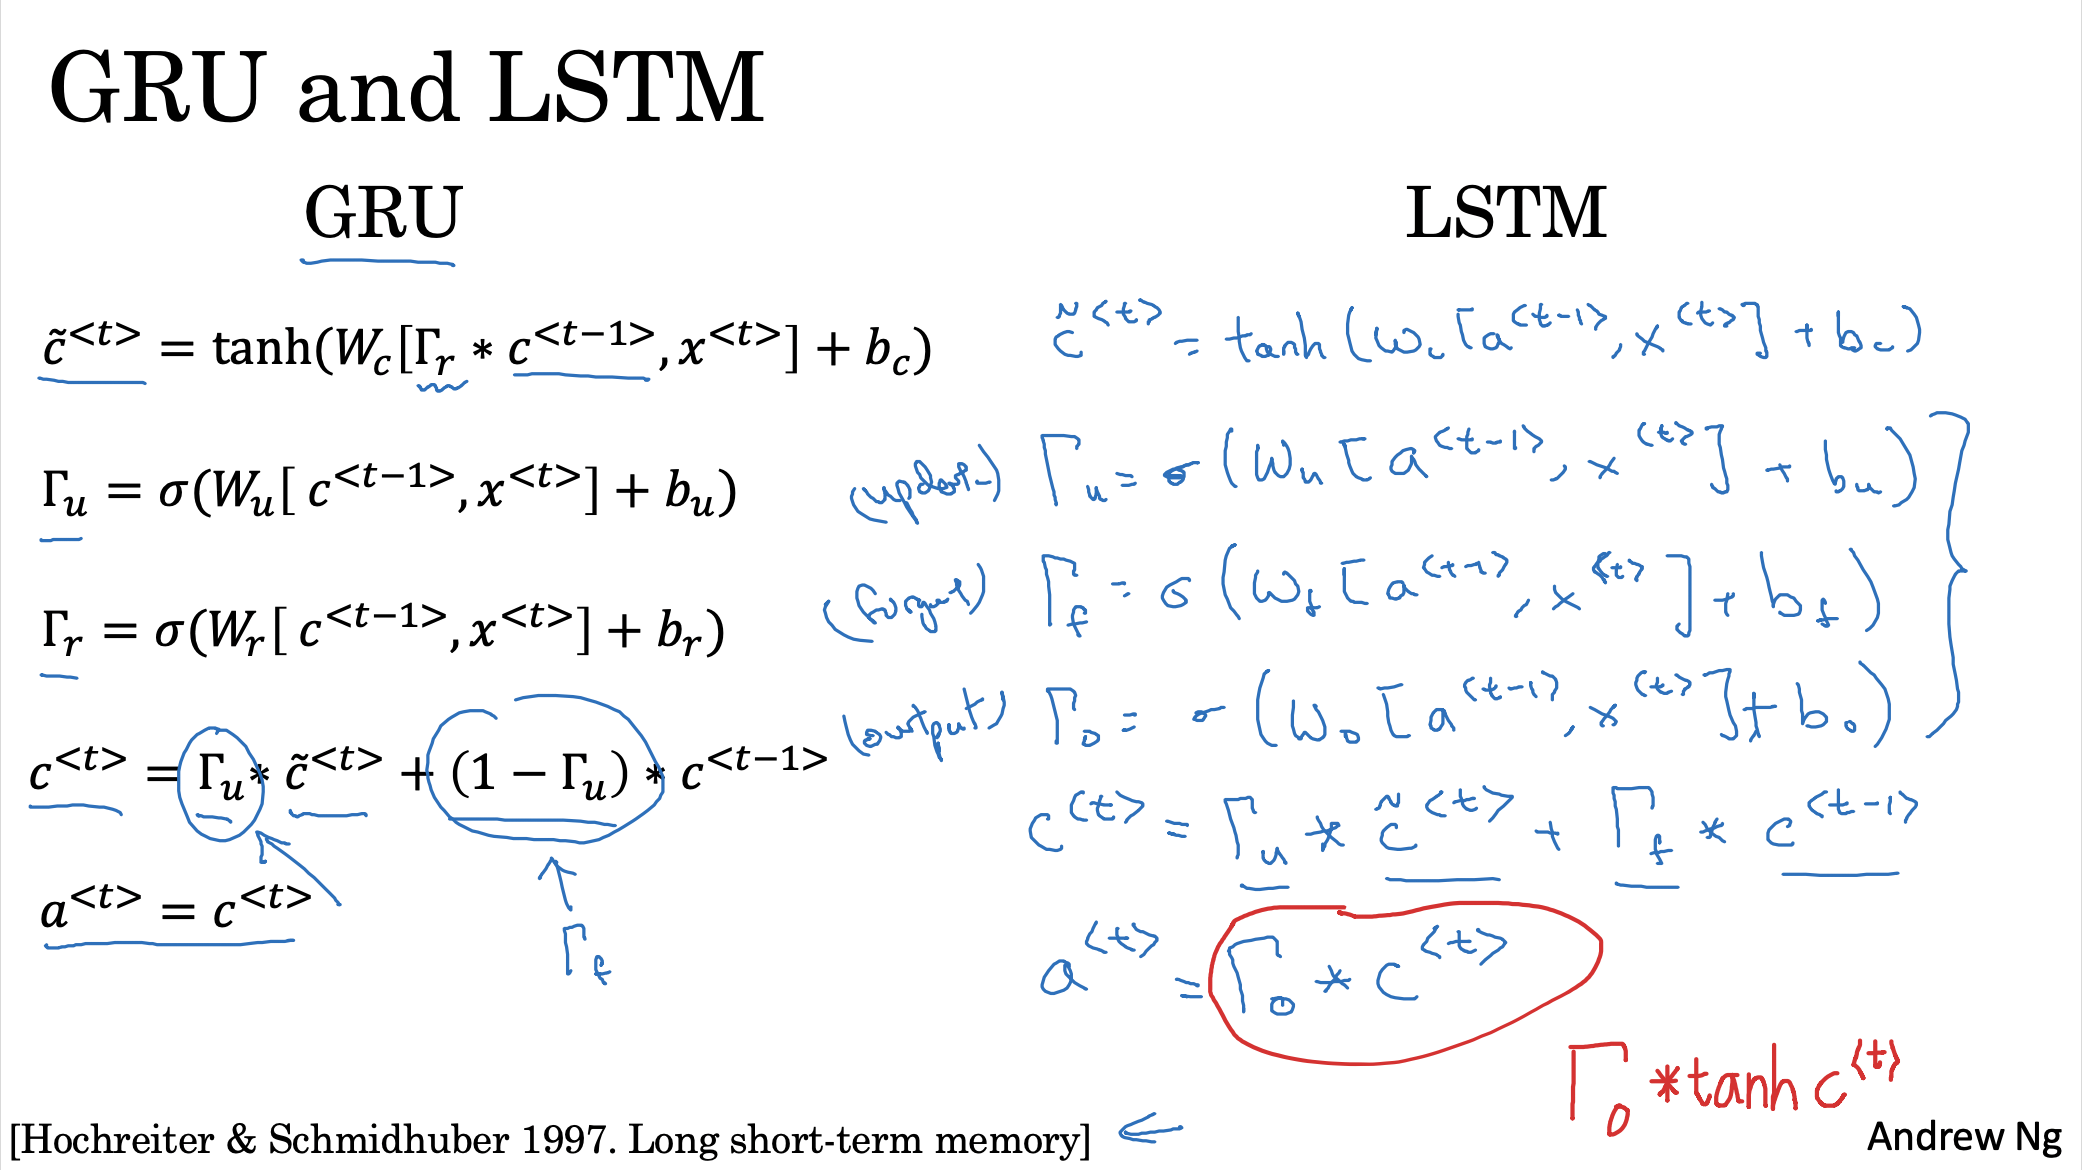 GRU and LSTM
GRU
c̃<t> = tanh(Wc[Γr * c<t−1>, x<t>] + bc)
Γu = σ(Wu[ c<t−1>, x<t>] + bu)
Γr = σ(Wr[ c<t−1>, x<t>] + br)
c<t> = Γu * c̃<t> + (1 − Γu) * c<t−1>
a<t> = c<t>
Γf
LSTM
c̃<t> = tanh(Wc[a<t-1>, x<t>] + bc)
(update) Γu = σ(Wu[a<t-1>, x<t>] + bu)
(forget) Γf = σ(Wf[a<t-1>, x<t>] + bf)
(output) Γo = σ(Wo[a<t-1>, x<t>] + bo)
c<t> = Γu * c̃<t> + Γf * c<t-1>
a<t> = Γo * c<t>
Γo * tanh c<t>
[Hochreiter & Schmidhuber 1997. Long short-term memory] ←
Andrew Ng